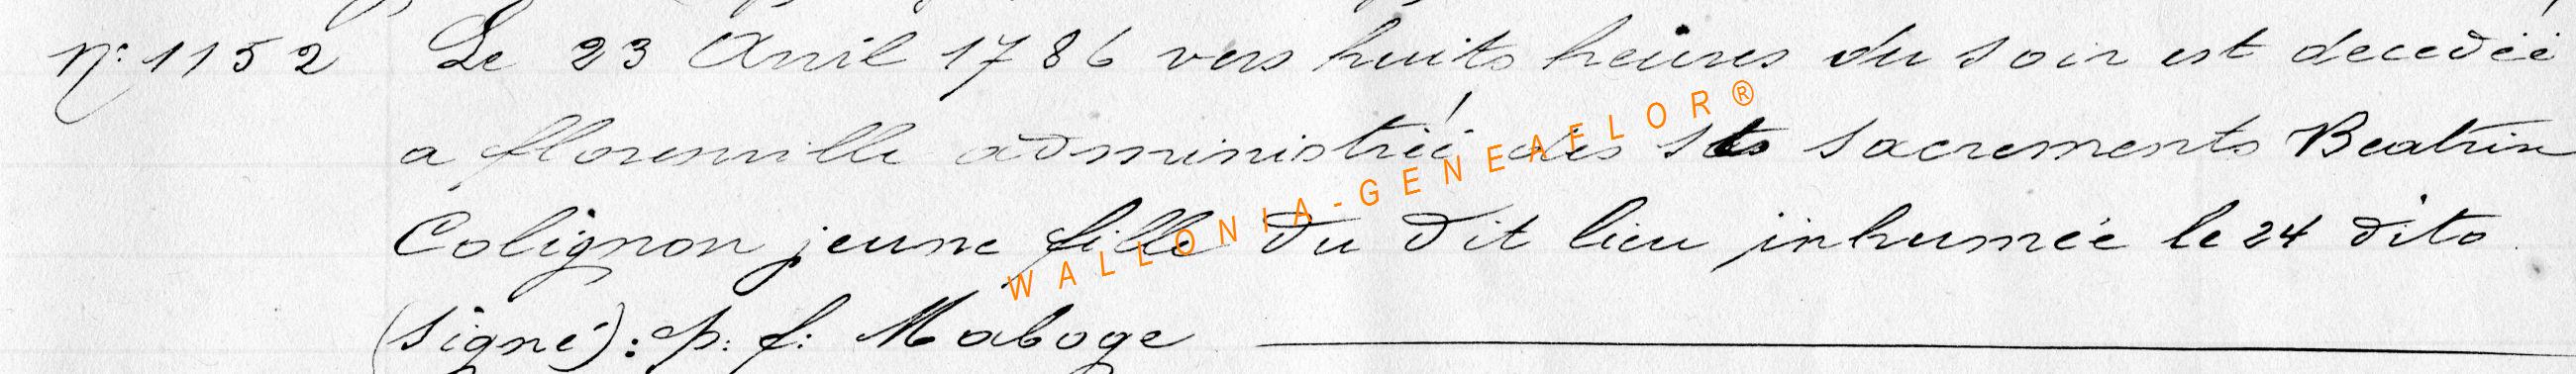 n: 1152 Le 23 Avril 1786 vers huits heures du soir est decedéé
a florenville administréé des sts sacrements Beatrix
Colignon jeune fille du dit lieu inhumée le 24 dito.
(signé): p: f: Maboge
WALLONIA-GENEAFLOR®